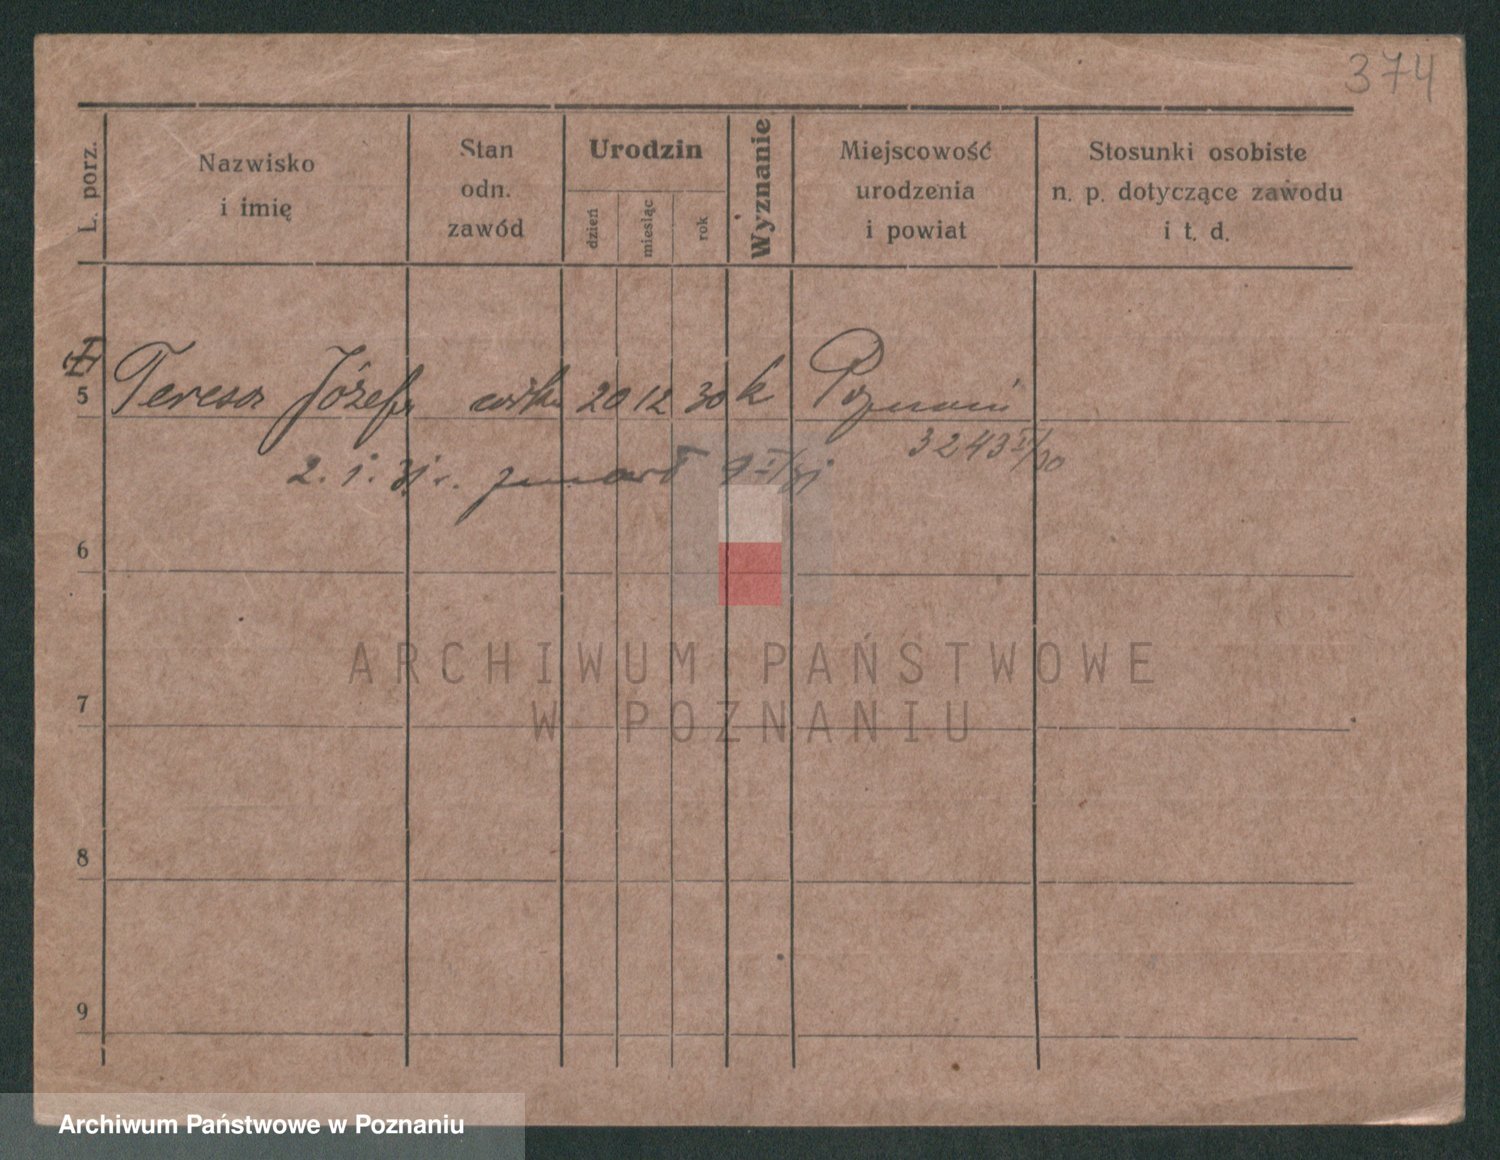 374
L. porz.
Nazwisko
i imię
Stan
odn.
zawód
Urodzin
dzień
miesiąc
rok
Wyznanie
Miejscowość
urodzenia
i powiat
Stosunki osobiste
n. p. dotyczące zawodu
i t. d.
5 Teresa Józefa córka 20 12 30 k Poznań
3243 /30
2. 1. 31 r. zmarł 9 I/31
6
ARCHIWUM PAŃSTWOWE
W POZNANIU
7
8
9
Archiwum Państwowe w Poznaniu